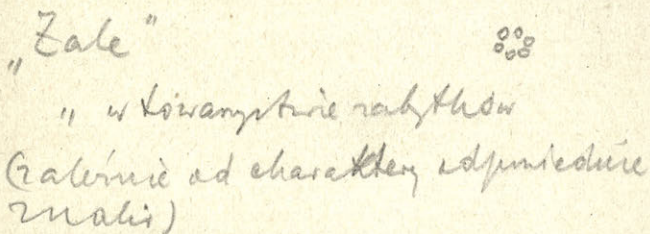 „Żale”
„ w towarzystwie zabytków
(zależnie od charakteru odpowiednie
znaki)